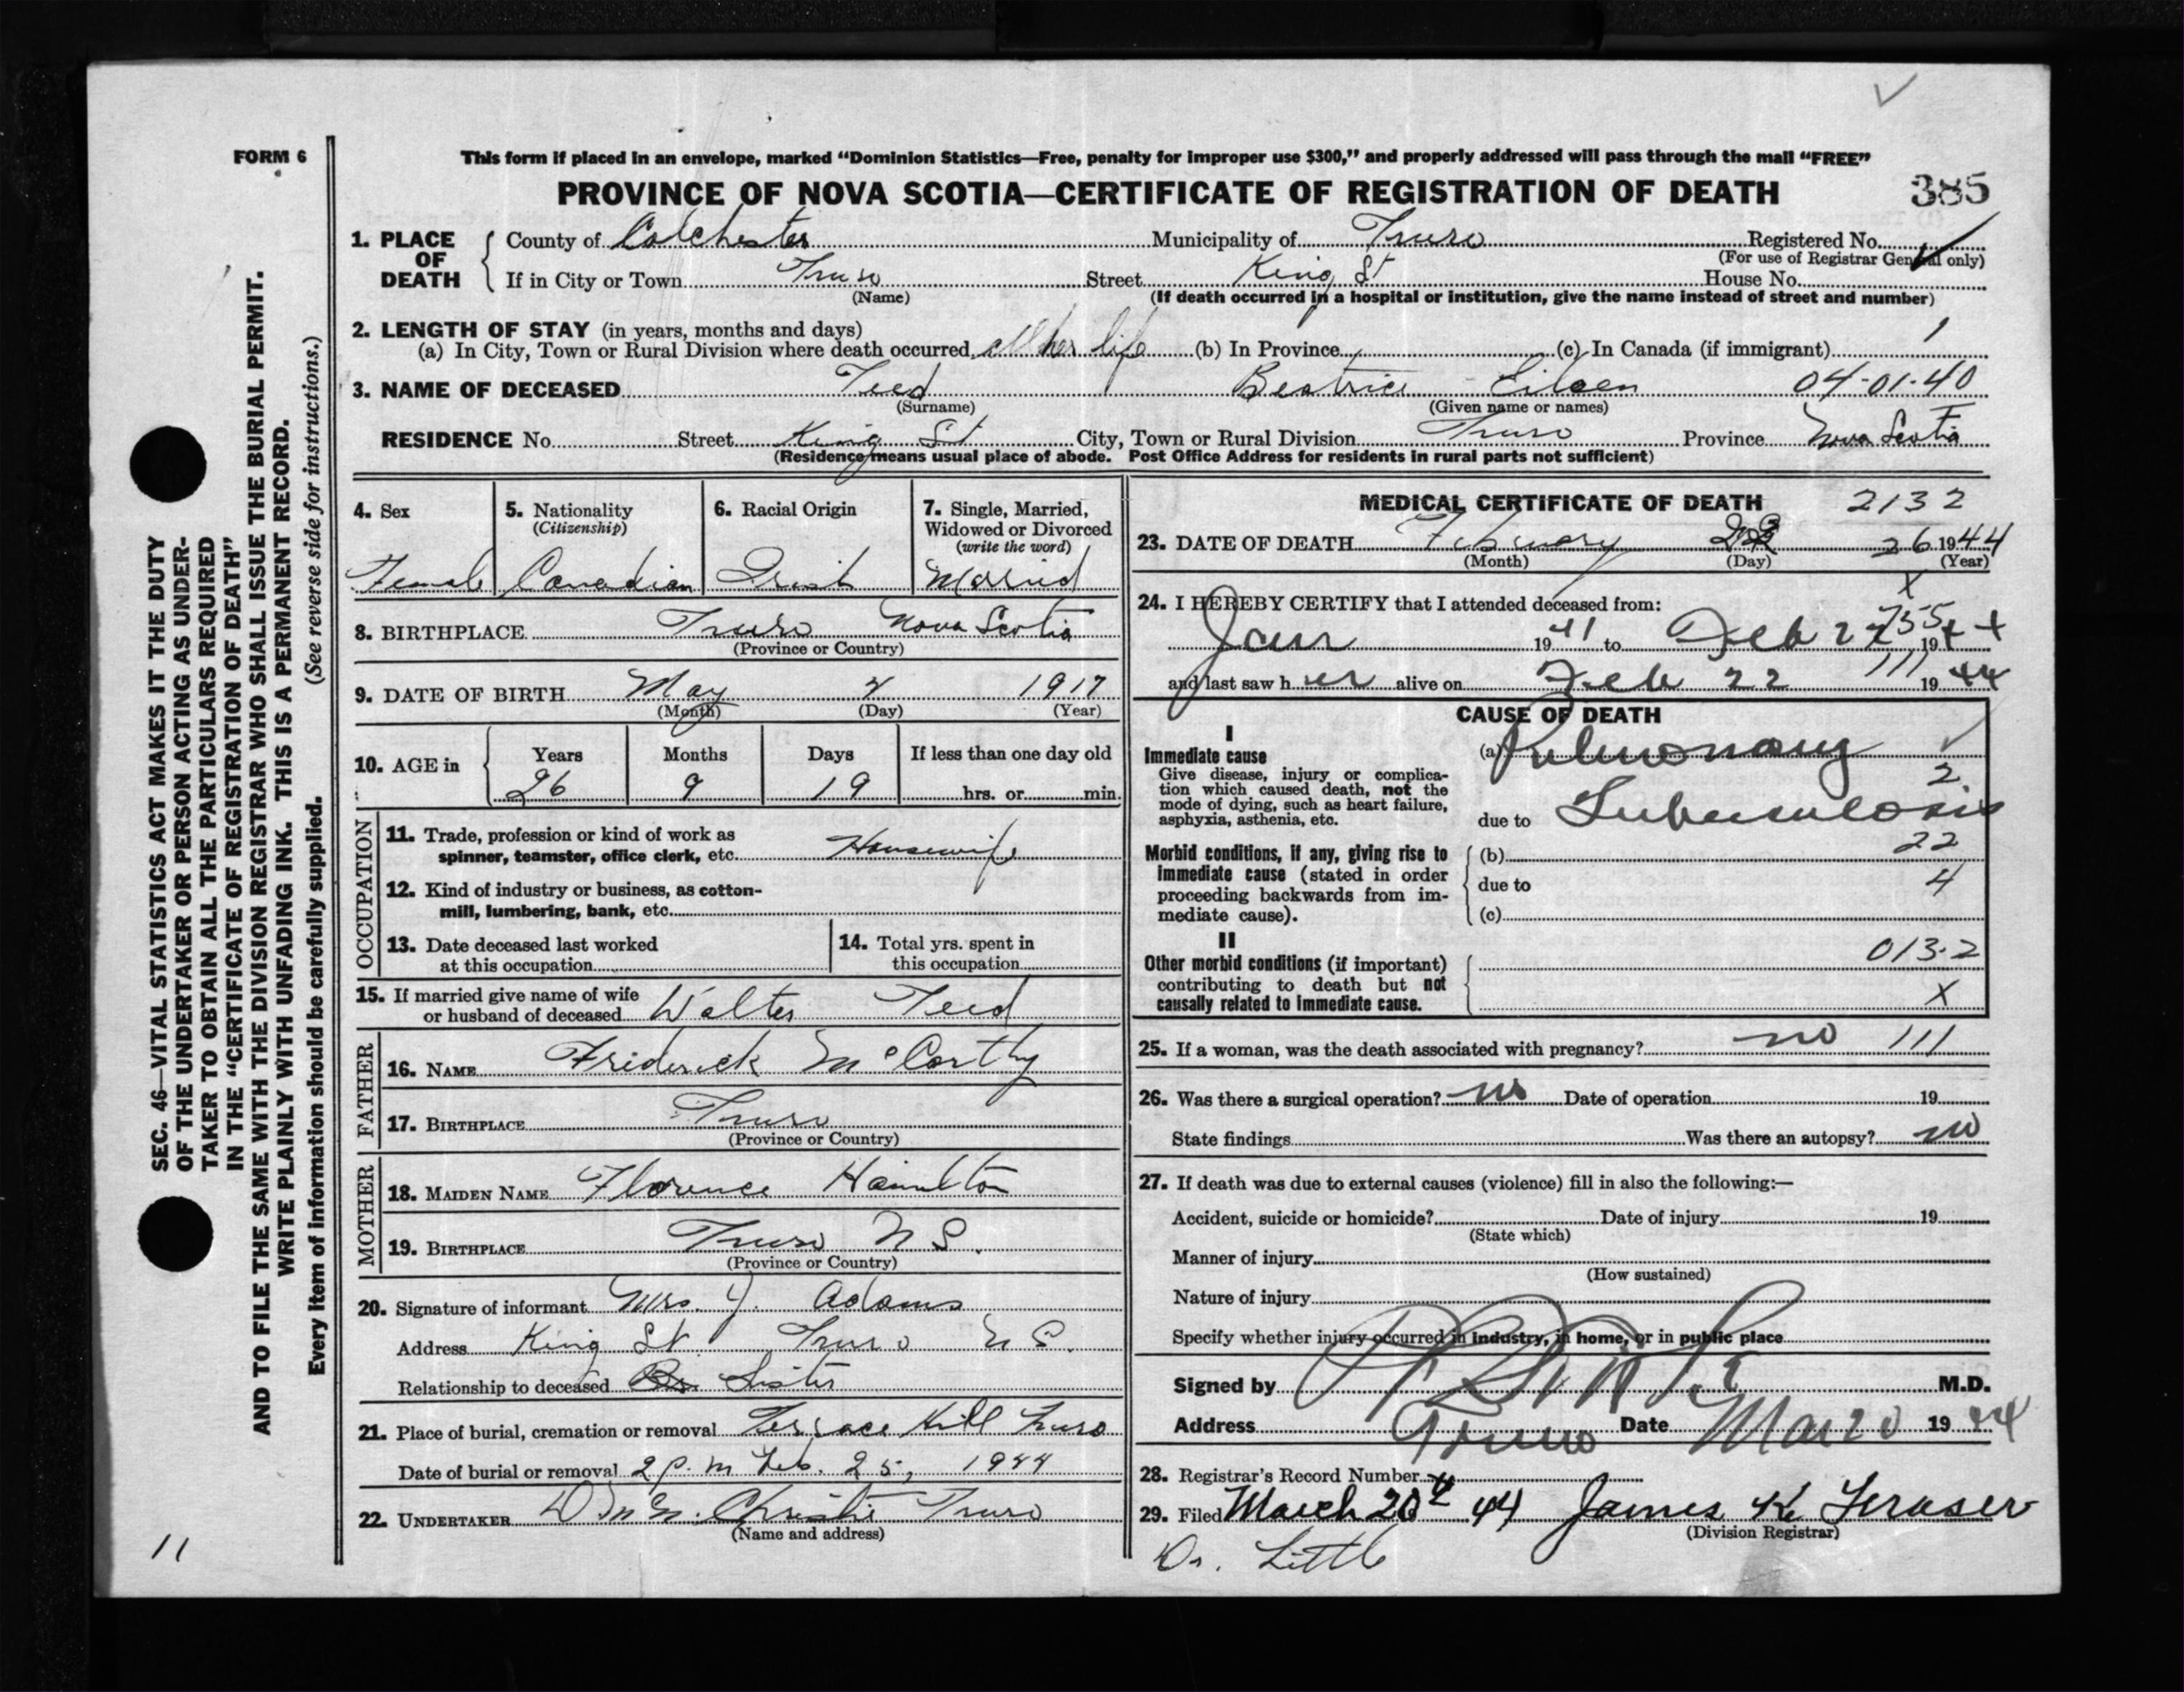 FORM 6
This form if placed in an envelope, marked “Dominion Statistics—Free, penalty for improper use $300,” and properly addressed will pass through the mail “FREE”
PROVINCE OF NOVA SCOTIA—CERTIFICATE OF REGISTRATION OF DEATH 385
1. PLACE OF DEATH County of Colchester Municipality of Truro Registered No.
(For use of Registrar General only)
If in City or Town Truro Street King St House No.
(Name) (If death occurred in a hospital or institution, give the name instead of street and number)
2. LENGTH OF STAY (in years, months and days) 1
(a) In City, Town or Rural Division where death occurred all her life (b) In Province (c) In Canada (if immigrant)
3. NAME OF DECEASED Teed Beatrice Eileen 04-01-40
(Surname) (Given name or names)
RESIDENCE No. Street King St City, Town or Rural Division Truro Province Nova Scotia
(Residence means usual place of abode. Post Office Address for residents in rural parts not sufficient)
4. Sex 5. Nationality 6. Racial Origin 7. Single, Married,
(Citizenship) Widowed or Divorced
(write the word)
Female Canadian Irish Married
8. BIRTHPLACE Truro Nova Scotia
(Province or Country)
9. DATE OF BIRTH May 4 1917
(Month) (Day) (Year)
10. AGE in Years Months Days If less than one day old
26 9 19 hrs. or min.
OCCUPATION
11. Trade, profession or kind of work as
spinner, teamster, office clerk, etc. Housewife
12. Kind of industry or business, as cotton-
mill, lumbering, bank, etc.
13. Date deceased last worked 14. Total yrs. spent in
at this occupation this occupation
15. If married give name of wife
or husband of deceased Walter Teed
FATHER
16. NAME Friderick McCarthy
17. BIRTHPLACE Truro
(Province or Country)
MOTHER
18. MAIDEN NAME Florence Hamilton
19. BIRTHPLACE Truro N S.
(Province or Country)
20. Signature of informant Mrs. J. Adams
Address King St. Truro N S.
Relationship to deceased Sister
21. Place of burial, cremation or removal Terrace Hill Truro
Date of burial or removal 2 p.m Feb. 25, 1944
22. UNDERTAKER Christie Truro
(Name and address)
MEDICAL CERTIFICATE OF DEATH 2132
23. DATE OF DEATH February 26 1944
(Month) (Day) (Year)
X
24. I HEREBY CERTIFY that I attended deceased from: 755
Jan 1941 to Feb 22 1944
and last saw her alive on Feb 22 111 1944
CAUSE OF DEATH
I
Immediate cause (a) Pulmonary
Give disease, injury or complica-
tion which caused death, not the 2
mode of dying, such as heart failure,
asphyxia, asthenia, etc. due to Tuberculosis
22
Morbid conditions, if any, giving rise to (b)
immediate cause (stated in order due to 4
proceeding backwards from im-
mediate cause). (c)
II
Other morbid conditions (if important) 013.2
contributing to death but not
causally related to immediate cause. X
25. If a woman, was the death associated with pregnancy? no 111
26. Was there a surgical operation? no Date of operation 19
State findings Was there an autopsy? no
27. If death was due to external causes (violence) fill in also the following:—
Accident, suicide or homicide? Date of injury 19
(State which)
Manner of injury
(How sustained)
Nature of injury
Specify whether injury occurred in industry, in home, or in public place
Signed by M.D.
Address Truro Date Mar 20 1944
28. Registrar's Record Number
29. Filed March 20th 44 James K Fraser
(Division Registrar)
Dr. Little
SEC. 46—VITAL STATISTICS ACT MAKES IT THE DUTY
OF THE UNDERTAKER OR PERSON ACTING AS UNDER-
TAKER TO OBTAIN ALL THE PARTICULARS REQUIRED
IN THE “CERTIFICATE OF REGISTRATION OF DEATH”
AND TO FILE THE SAME WITH THE DIVISION REGISTRAR WHO SHALL ISSUE THE BURIAL PERMIT.
WRITE PLAINLY WITH UNFADING INK. THIS IS A PERMANENT RECORD.
Every item of information should be carefully supplied. (See reverse side for instructions.)
11